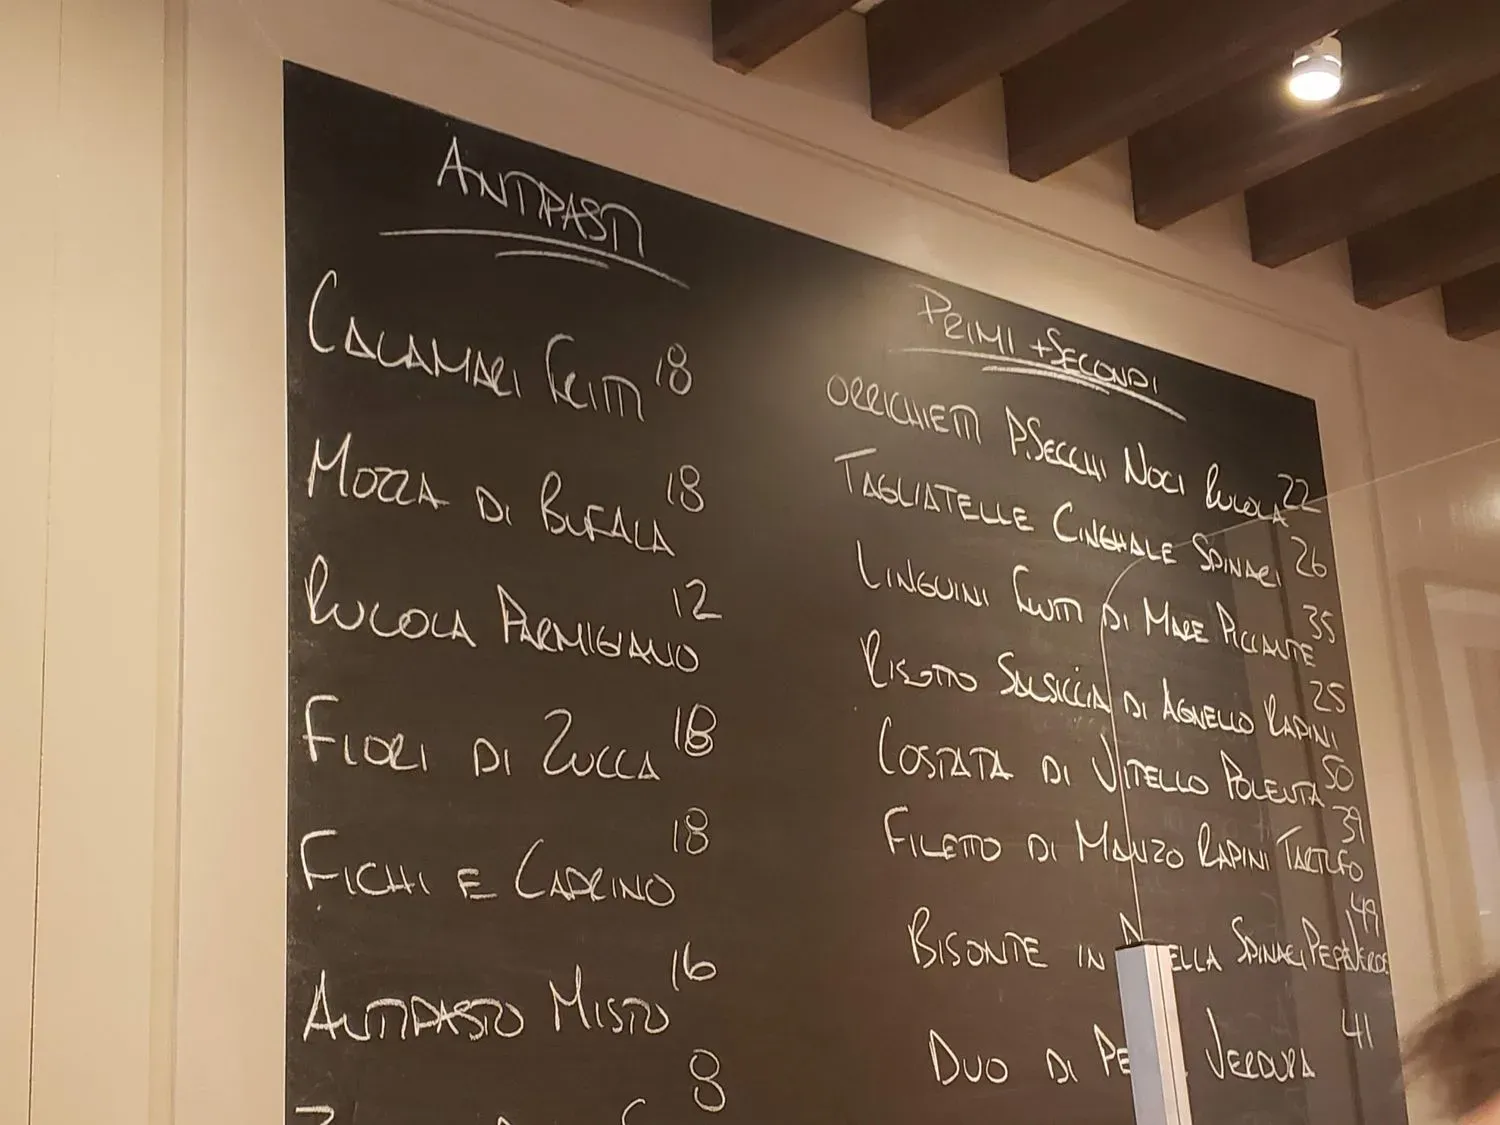 ANTIPASTI
CALAMARI FRITTI 18
MOZZA DI BUFALA 18
RUCOLA PARMIGIANO 12
FIORI DI ZUCCA 18
FICHI E CAPRINO 18
ANTIPASTO MISTO 16
8
PRIMI + SECONDI
ORRICHIETTI P.SECCHI NOCI RUCOLA 22
TAGLIATELLE CINGHALE SPINACI 26
LINGUINI FRUTTI DI MARE PICCANTE 35
RISOTTO SALSICCIA DI AGNELLO RAPINI 25
COSTATA DI VITELLO POLENTA 50
FILETTO DI MANZO RAPINI TARTUFO 39
BISONTE IN ELLA SPINACI PEPEVERDE 49
DUO DI VERDURA 41